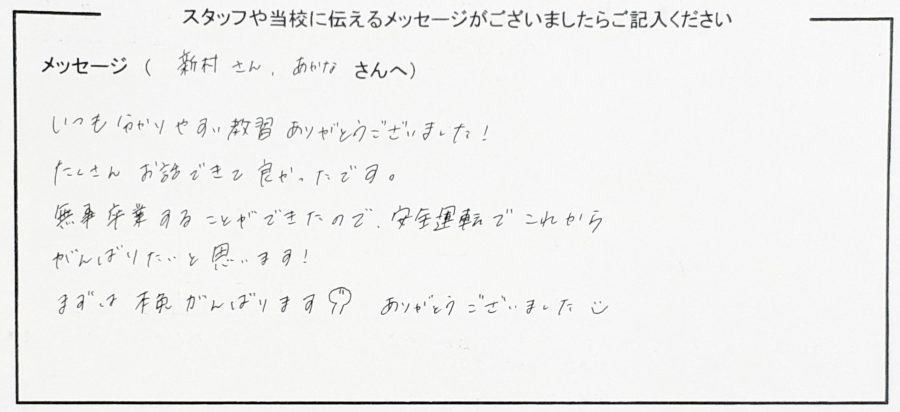 スタッフや当校に伝えるメッセージがございましたらご記入ください
メッセージ ( 新村さん、あかな さんへ)
いつも分かりやすい教習ありがとうございました!
たくさんお話できて良かったです。
無事卒業することができたので、安全運転でこれから
がんばりたいと思います!
まずは本免がんばります ありがとうございました